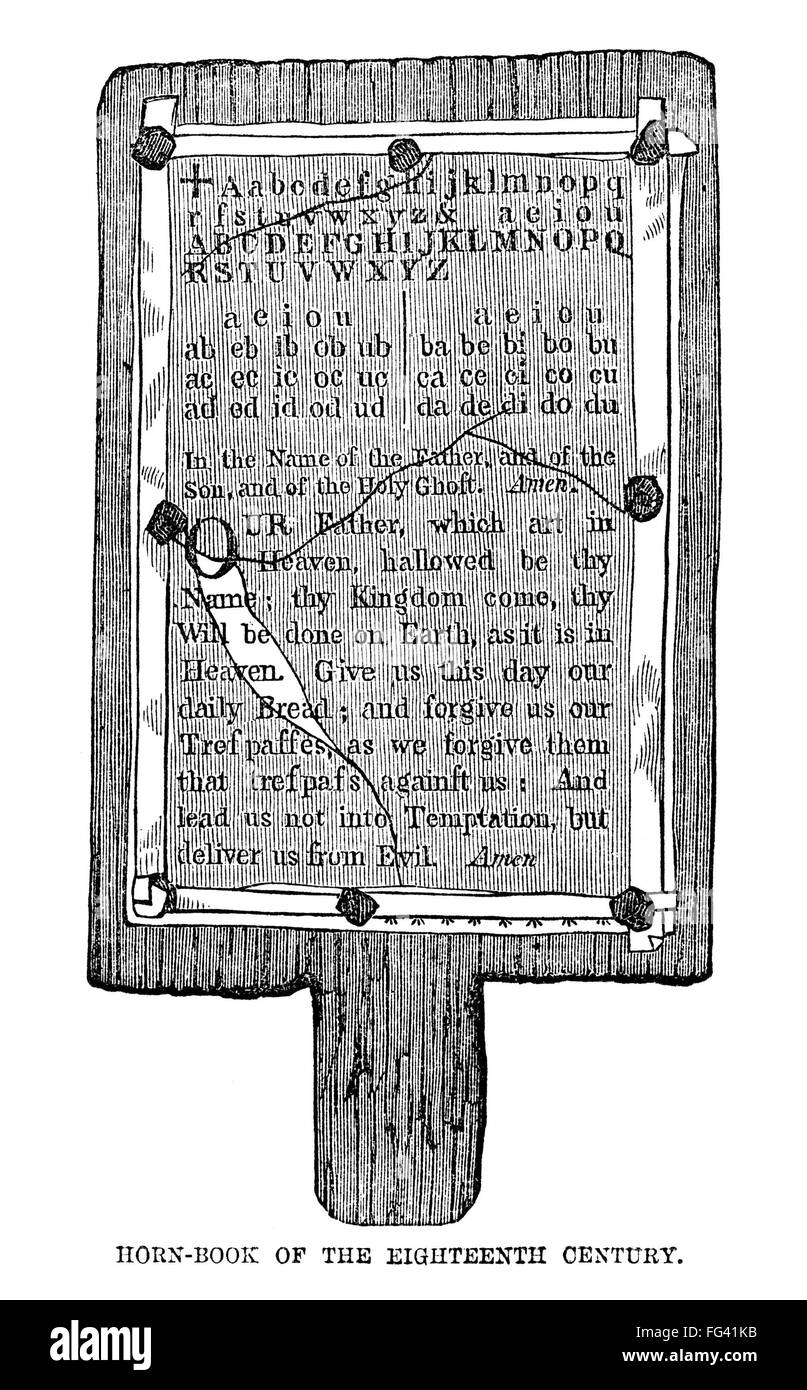 + A a b c d e f g h i j k l m n o p q
r ſ s t u v w x y z & a e i o u
A B C D E F G H I J K L M N O P Q
R S T U V W X Y Z
a e i o u a e i o u
ab eb ib ob ub ba be bi bo bu
ac ec ic oc uc ca ce ci co cu
ad ed id od ud da de di do du
In the Name of the Father, and of the
Son, and of the Holy Ghoſt. Amen.
OUR Father, which art in
Heaven, hallowed be thy
Name; thy Kingdom come, thy
Will be done on Earth, as it is in
Heaven. Give us this day our
daily Bread; and forgive us our
Treſpaſſes, as we forgive them
that treſpaſs againſt us: And
lead us not into Temptation, but
deliver us from Evil. Amen
HORN-BOOK OF THE EIGHTEENTH CENTURY.
alamy stock photo
FG41KB
www.alamy.com